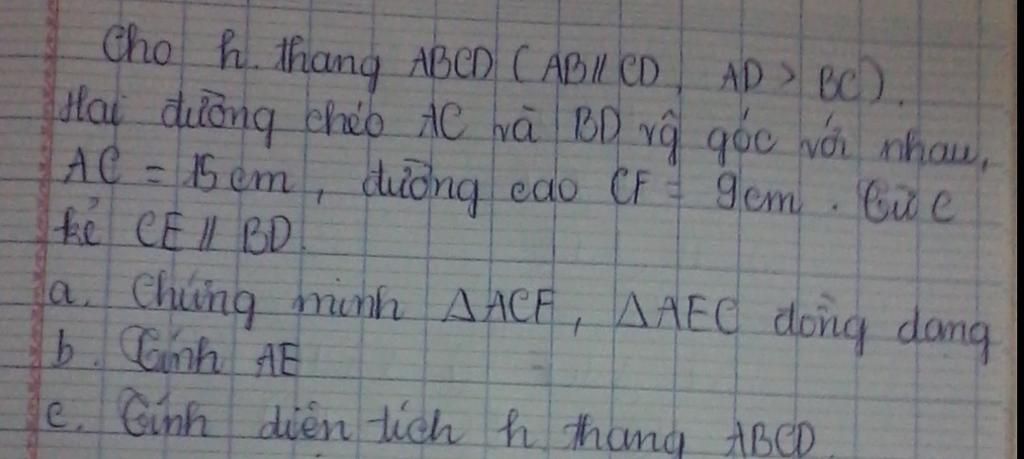 Cho h. thang ABCD (AB // CD, AD > BC).
Hai đường chéo AC và BD vg góc với nhau,
AC = 15 cm, đường cao CF = 9cm. Từ C
kẻ CE // BD
a. Chứng minh ΔACF, ΔAEC đồng dạng
b. Tính AE
c. Tính diện tích h thang ABCD